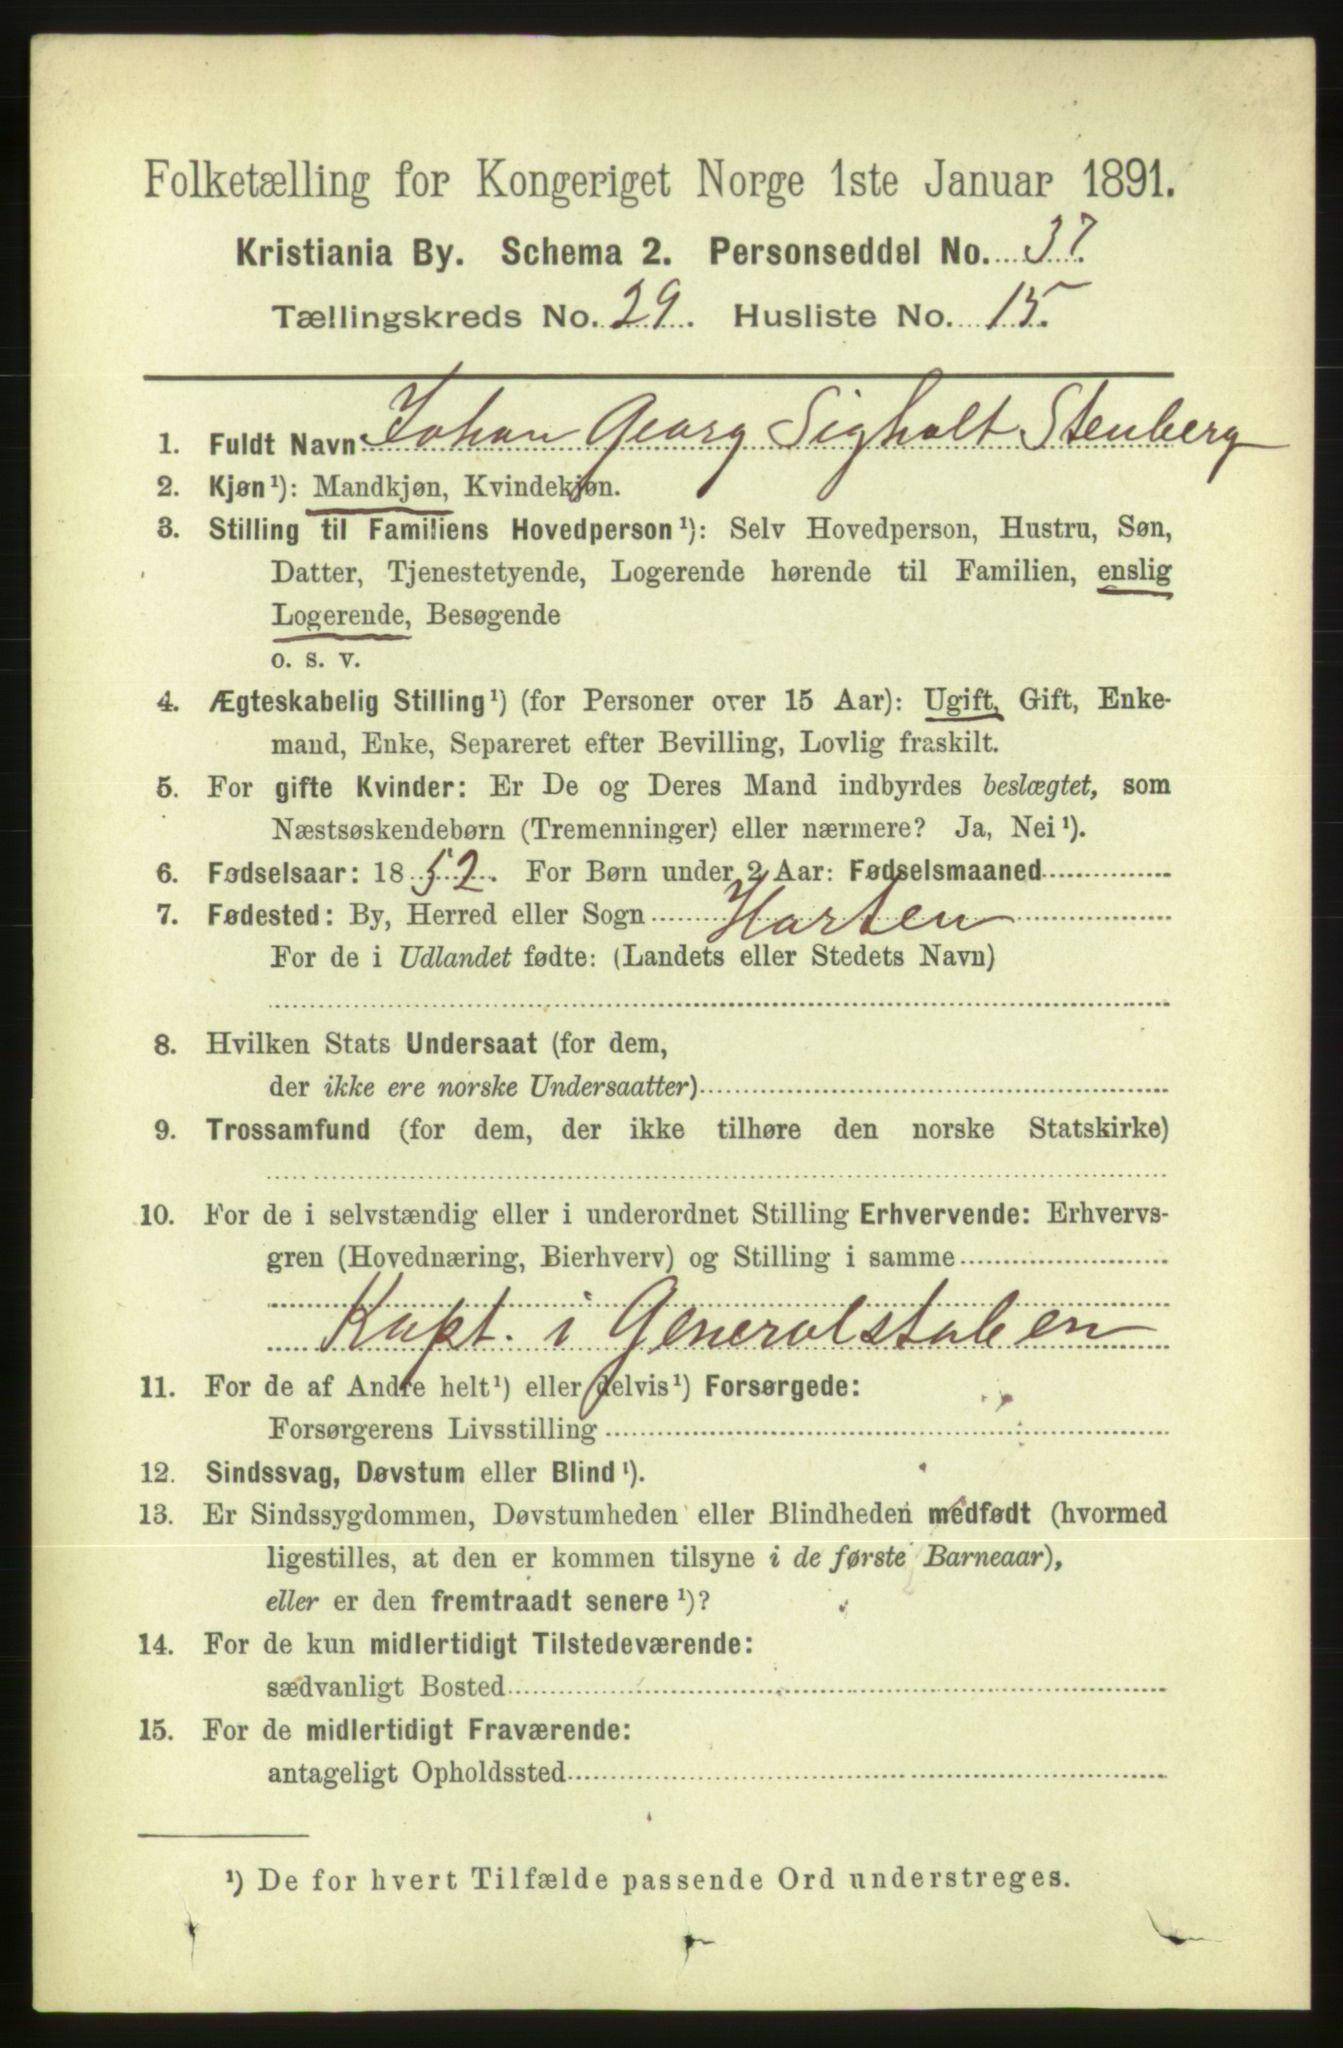 Folketælling for Kongeriget Norge 1ste Januar 1891.
Kristiania By. Schema 2. Personseddel No. 37.
Tællingskreds No. 29. Husliste No. 15.
1. Fuldt Navn Johan Georg Sigholt Stenberg
2. Kjøn¹): Mandkjøn, Kvindekjøn.
3. Stilling til Familiens Hovedperson¹): Selv Hovedperson, Hustru, Søn,
Datter, Tjenestetyende, Logerende hørende til Familien, enslig
Logerende, Besøgende
o. s. v.
4. Ægteskabelig Stilling¹) (for Personer over 15 Aar): Ugift, Gift, Enke-
mand, Enke, Separeret efter Bevilling, Lovlig fraskilt.
5. For gifte Kvinder: Er De og Deres Mand indbyrdes beslægtet, som
Næstsøskendebørn (Tremenninger) eller nærmere? Ja, Nei¹).
6. Fødselsaar: 1852. For Børn under 2 Aar: Fødselsmaaned
7. Fødested: By, Herred eller Sogn Horten
For de i Udlandet fødte: (Landets eller Stedets Navn)
8. Hvilken Stats Undersaat (for dem,
der ikke ere norske Undersaatter)
9. Trossamfund (for dem, der ikke tilhøre den norske Statskirke)
10. For de i selvstændig eller i underordnet Stilling Erhvervende: Erhvervs-
gren (Hovednæring, Bierhverv) og Stilling i samme
Kapt. i Generalstaben
11. For de af Andre helt¹) eller delvis¹) Forsørgede:
Forsørgerens Livsstilling
12. Sindssvag, Døvstum eller Blind¹).
13. Er Sindssygdommen, Døvstumheden eller Blindheden medfødt (hvormed
ligestilles, at den er kommen tilsyne i de første Barneaar),
eller er den fremtraadt senere¹)?
14. For de kun midlertidigt Tilstedeværende:
sædvanligt Bosted
15. For de midlertidigt Fraværende:
antageligt Opholdssted
¹) De for hvert Tilfælde passende Ord understreges.